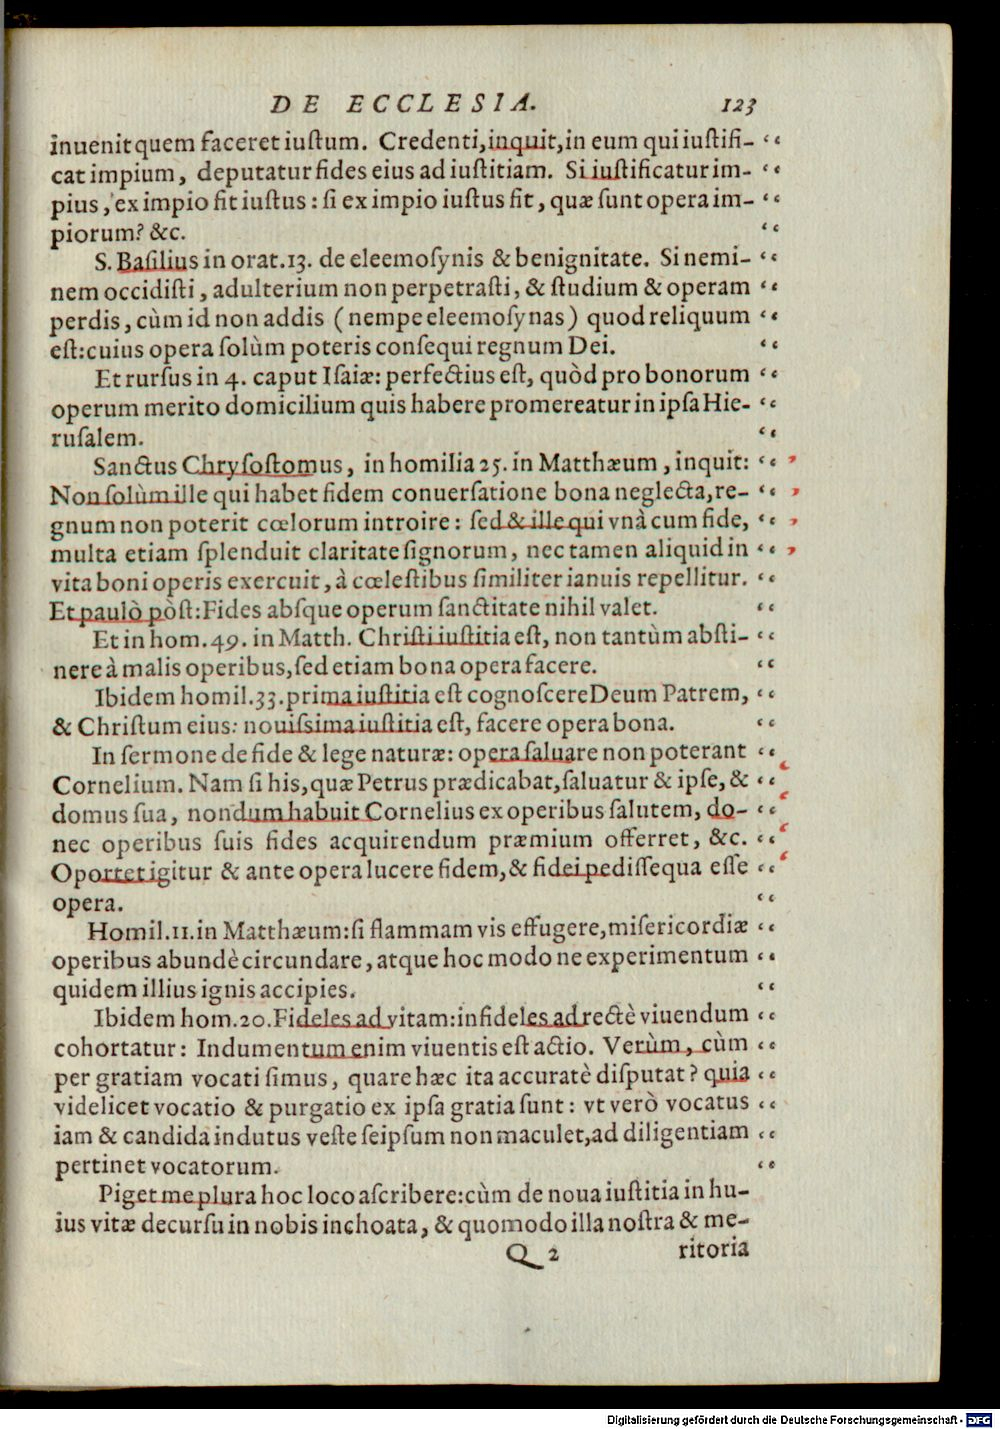 DE ECCLESIA. 123
inuenit quem faceret iustum. Credenti, inquit, in eum qui iustifi- “
cat impium, deputatur fides eius ad iustitiam. Si iustificatur im- “
pius, ex impio fit iustus: si ex impio iustus fit, quæ sunt opera im- “
piorum? &c. “
S. Basilius in orat. 13. de eleemosynis & benignitate. Si nemi- “
nem occidisti, adulterium non perpetrasti, & studium & operam “
perdis, cùm id non addis (nempe eleemosynas) quod reliquum “
est: cuius opera solùm poteris consequi regnum Dei. “
Et rursus in 4. caput Isaiæ: perfectius est, quòd pro bonorum “
operum merito domicilium quis habere promereatur in ipsa Hie- “
rusalem. “
Sanctus Chrysostomus, in homilia 25. in Matthæum, inquit: “
Non solùm ille qui habet fidem conuersatione bona neglecta, re- “
gnum non poterit cœlorum introire: sed & ille qui vnà cum fide, “
multa etiam splenduit claritate signorum, nec tamen aliquid in “
vita boni operis exercuit, à cœlestibus similiter ianuis repellitur. “
Et paulò pòst: Fides absque operum sanctitate nihil valet. “
Et in hom. 49. in Matth. Christi iustitia est, non tantùm absti- “
nere à malis operibus, sed etiam bona opera facere. “
Ibidem homil. 33. prima iustitia est cognoscere Deum Patrem, “
& Christum eius: nouissima iustitia est, facere opera bona. “
In sermone de fide & lege naturæ: opera saluare non poterant “
Cornelium. Nam si his, quæ Petrus prædicabat, saluatur & ipse, & “
domus sua, nondum habuit Cornelius ex operibus salutem, do- “
nec operibus suis fides acquirendum præmium offerret, &c. “
Oportet igitur & ante opera lucere fidem, & fidei pedissequa esse “
opera. “
Homil. 11. in Matthæum: si flammam vis effugere, misericordiæ “
operibus abundè circundare, atque hoc modo ne experimentum “
quidem illius ignis accipies. “
Ibidem hom. 20. Fideles ad vitam: infideles ad rectè viuendum “
cohortatur: Indumentum enim viuentis est actio. Verùm, cùm “
per gratiam vocati simus, quare hæc ita accuratè disputat? quia “
videlicet vocatio & purgatio ex ipsa gratia sunt: vt verò vocatus “
iam & candida indutus veste seipsum non maculet, ad diligentiam “
pertinet vocatorum. “
Piget me plura hoc loco ascribere: cùm de noua iustitia in hu-
ius vitæ decursu in nobis inchoata, & quomodo illa nostra & me-
Q 2 ritoria
Digitalisierung gefördert durch die Deutsche Forschungsgemeinschaft - DFG